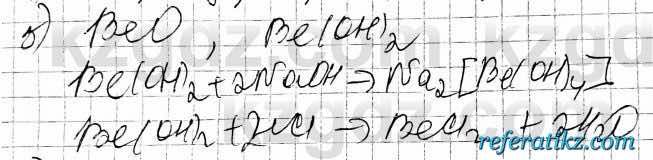 б) BeO, Be(OH)₂
Be(OH)₂ + 2NaOH → Na₂[Be(OH)₄]
Be(OH)₂ + 2HCl → BeCl₂ + 2H₂O
referatikz.com